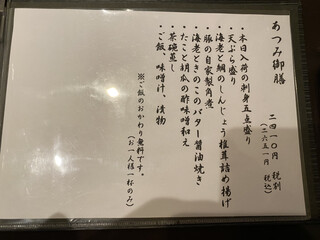 あつみ御膳
二四一〇円 税別
(二六五一円 税込)
・本日入荷の刺身五点盛り
・天ぷら盛り
・海老と鯛のしんじょう椎茸詰め揚げ
・豚の自家製角煮
・海老ときのこのバター醤油焼き
・たこと胡瓜の酢味噌和え
・茶碗蒸し
・ご飯、味噌汁、漬物
※ご飯のおかわり無料です。
(お一人様一杯のみ)